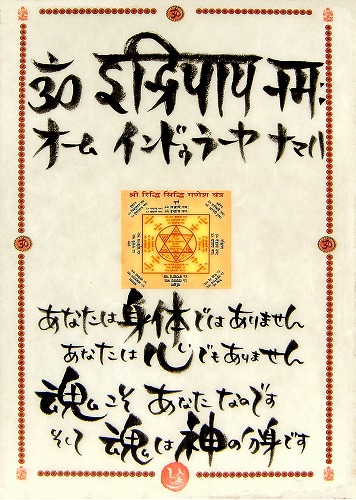 ॐ इद्रियाय नमः
オーム インドゥラーヤ ナマハ
श्री रिद्धि सिद्धि गणेश यंत्र
あなたは身体ではありません
あなたは心でもありません
魂こそ あなたなのです
そして 魂は神の分身です